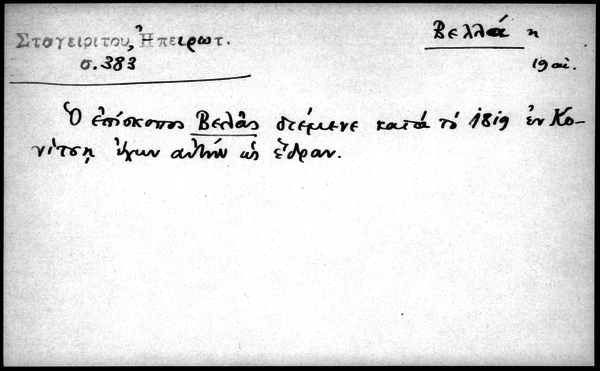 Σταγειρίτου, Ἠπειρωτ.
σ. 383
Βελλά η
19 αἰ.
Ὁ ἐπίσκοπος Βελᾶς διέμενε κατά τό 1819 ἐν Κο-
νίτσῃ ἔχων αὐτήν ὡς ἕδραν.